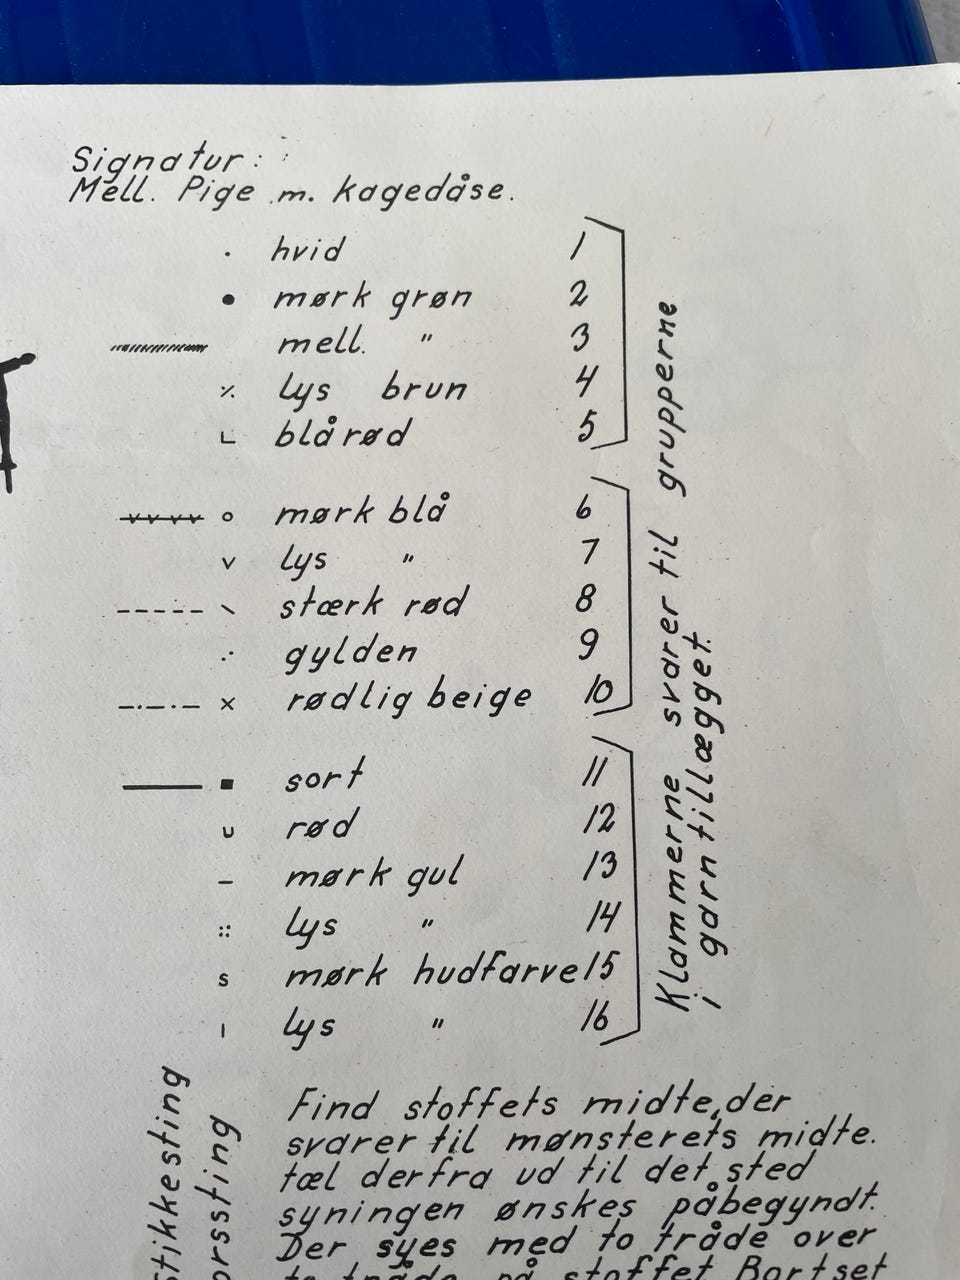 Signatur:
Mell. Pige m. kagedåse.
. hvid 1
● mørk grøn 2
mell. " 3
⁒ lys brun 4
∟ blårød 5
○ mørk blå 6
v lys " 7
\ stærk rød 8
∴ gylden 9
x rødlig beige 10
■ sort 11
u rød 12
– mørk gul 13
:: lys " 14
s mørk hudfarve 15
ı lys " 16
Klammerne svarer til grupperne
i garntillægget.
Stikkesting
Find stoffets midte, der
svarer til mønsterets midte.
tæl derfra ud til det sted
syningen ønskes påbegyndt.
Der syes med to tråde over
to tråde på stoffet Bortset